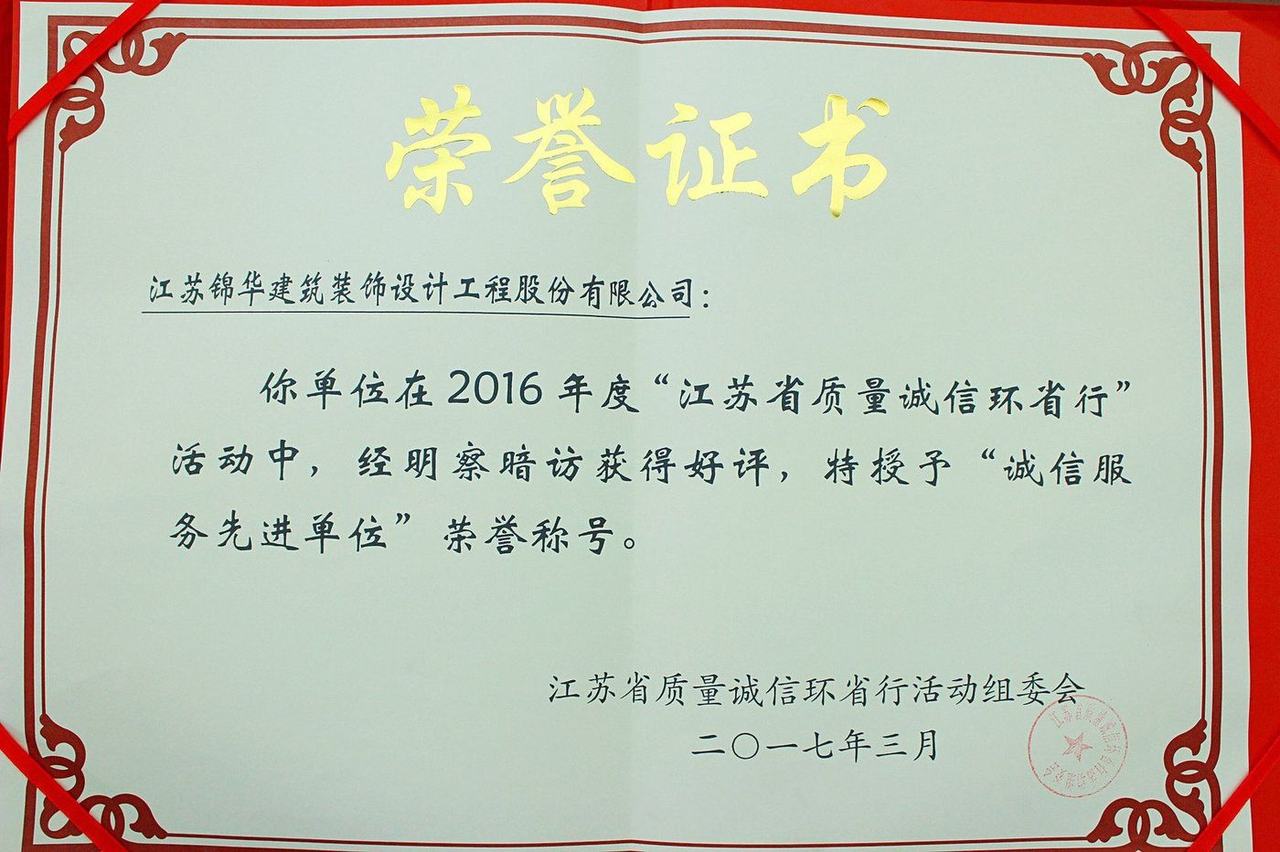 荣誉证书
江苏锦华建筑装饰设计工程股份有限公司：
你单位在 2016 年度“江苏省质量诚信环省行”
活动中，经明察暗访获得好评，特授予“诚信服
务先进单位”荣誉称号。
江苏省质量诚信环省行活动组委会
二〇一七年三月
江苏省质量诚信环省行活动组委会